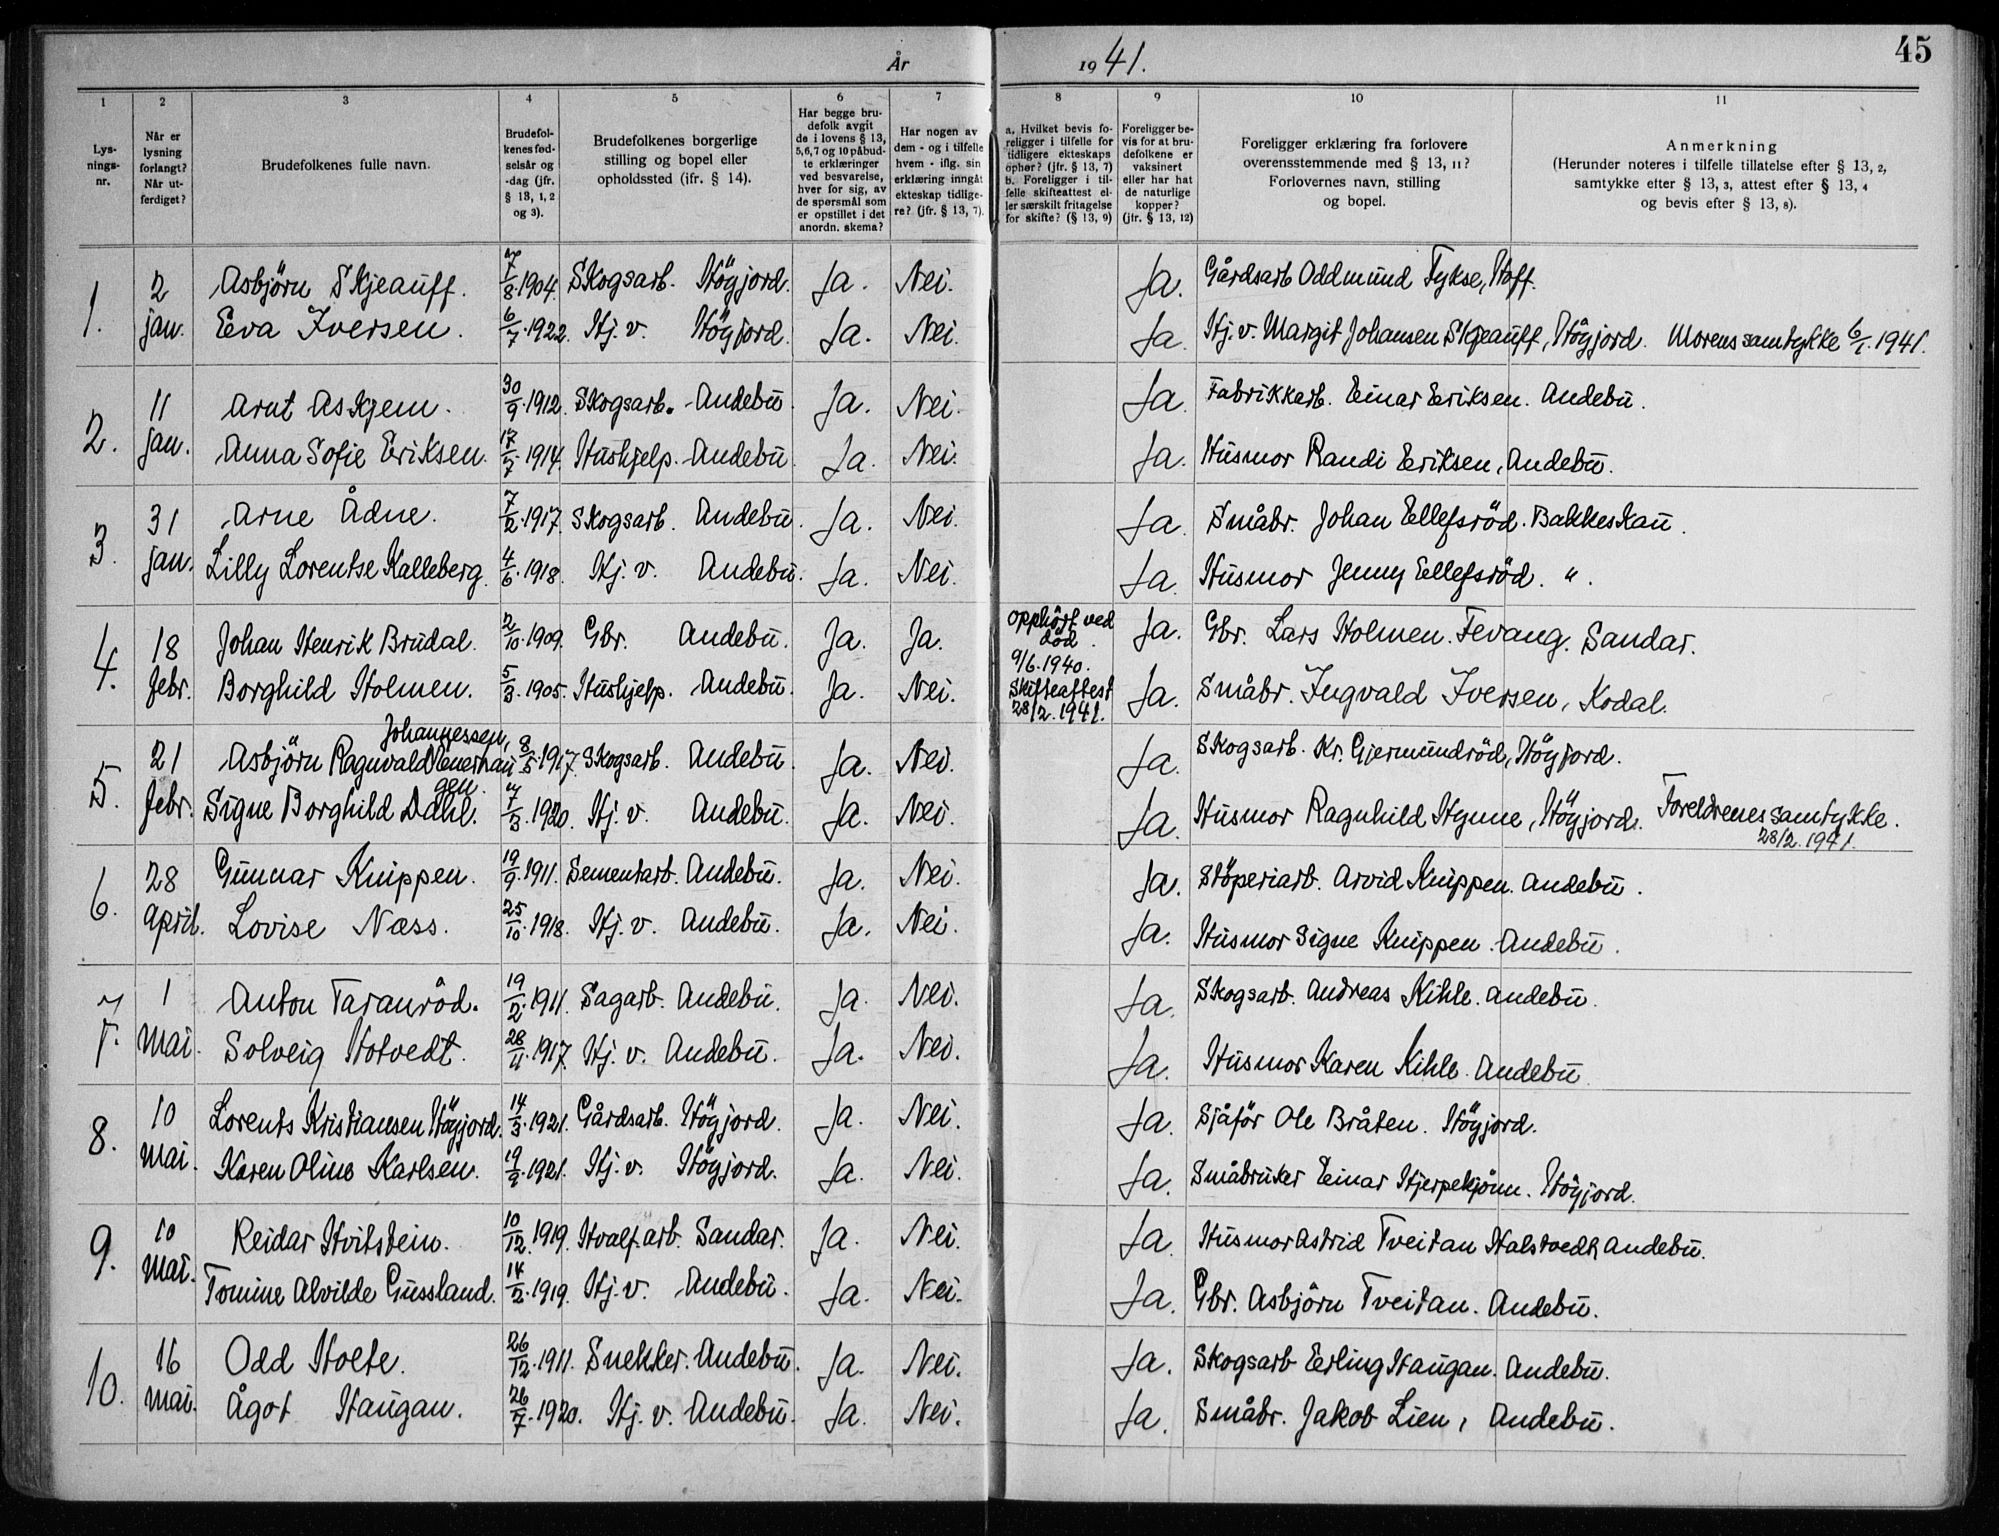 År 1941.
45
1 2 3 4 5 6 7 8 9 10 11
Lysningsnr.
Når er lysning forlangt? Når utferdiget?
Brudefolkenes fulle navn.
Brudefolkenes fødselsår og -dag (jfr. § 13, 1, 2 og 3).
Brudefolkenes borgerlige stilling og bopel eller opholdssted (ifr. § 14).
Har begge brudefolk avgit de i lovens § 13, 5, 6, 7 og 10 påbudte erklæringer ved besvarelse, hver for sig, av de spørsmål som er opstillet i det anordn. skema?
Har nogen av dem - og i tilfelle hvem - iflg. sin erklæring inngåt ekteskap tidligere? (jfr. § 13, 7).
a. Hvilket bevis foreligger i tilfelle for tidligere ekteskaps ophør? (jfr. § 13, 7) b. Foreligger i tilfelle skifteattest eller særskilt fritagelse for skifte? (§ 13, 9)
Foreligger bevis for at brudefolkene er vaksinert eller har hat de naturlige kopper? (jfr. § 13, 12)
Foreligger erklæring fra forlovere overensstemmende med § 13, 11? Forlovernes navn, stilling og bopel.
Anmerkning (Herunder noteres i tilfelle tillatelse efter § 13, 2, samtykke efter § 13, 3, attest efter § 13, 4 og bevis efter § 13, 8).
1. 2 jan. Asbjörn Skjeauff. 7/8.1904. Skogsarb. Högjord. Ja. Nei. Ja. Gårdsarb Oddmund Tykse, Hoff.
Eva Iversen. 6/7.1922. Hj. v. Högjord. Ja. Nei. Ja. Hj. v. Margit Johansen Skjeauff, Högjord. Morens samtykke 6/1.1941.
2. 11 jan. Arnt Askjem. 30/9.1912. Skogsarb. Andebu. Ja. Nei. Ja. Fabrikkarb. Einar Eriksen. Andebu.
Anna Sofie Eriksen. 17/7.1914. Hushjelp. Andebu. Ja. Nei. Ja. Husmor Randi Eriksen, Andebu.
3. 31 jan. Arne Ådne. 7/2.1917. Skogsarb. Andebu. Ja. Nei. Ja. Småbr. Johan Ellefsröd. Bakkeskau.
Lilly Lorentse Kalleberg. 4/6.1918. Hj. v. Andebu. Ja. Nei. Ja. Husmor Jenny Ellefsröd. "
4. 18 febr. Johan Henrik Brudal. 2/10.1909. Gbr. Andebu. Ja. Ja. Opphört ved död. 9/6.1940. Ja. Gbr. Lars Holmen. Fevang. Sandar.
Borghild Holmen. 5/3.1905. Hushjelp. Andebu. Ja. Nei. Skifteattest 28/2.1941. Ja. Småbr. Ingvald Iversen, Kodal.
5. 21 febr. Asbjörn Ragnvald Johannessen, 8/5.1917. Skogsarb. Andebu. Ja. Nei. Ja. Skogsarb. Kr. Gjermundröd, Högjord.
Signe Borghild Dahl. 7/3.1920. Hj. v. Andebu. Ja. Nei. Ja. Husmor Ragnhild Hynne, Högjord. Foreldrenes samtykke. 28/2.1941.
6. 28 april. Gunnar Knippen. 19/9.1911. Sementarb. Andebu. Ja. Nei. Ja. Stöperiarb. Arvid Knippen. Andebu.
Lovise Næss. 25/10.1918. Hj. v. Andebu. Ja. Nei. Ja. Husmor Signe Knippen. Andebu.
7. 1 Mai. Anton Taranröd. 19/2.1911. Sagarb. Andebu. Ja. Nei. Ja. Skogsarb. Andreas Kihle. Andebu.
Solveig Hotvedt. 28/11.1917. Hj. v. Andebu. Ja. Nei. Ja. Husmor Karen Kihle. Andebu
8. 10 Mai. Lorents Kristiansen Högjord. 14/3.1921. Gårdsarb. Högjord. Ja. Nei. Ja. Sjåför Ole Bråten. Högjord.
Karen Oline Karlsen. 19/9.1921. Hj. v. Högjord. Ja. Nei. Ja. Småbruker Einar Hjerpekjönn. Högjord.
9. 10 Mai. Reidar Hvitstein. 10/12.1919. Hvalf.arb. Sandar. Ja. Nei. Ja. Husmor Astrid Tveitan Halstvedt, Andebu.
Tomine Alvilde Gussland. 14/2.1919. Hj. v. Andebu. Ja. Nei. Ja. Gbr. Asbjörn Tveitan. Andebu.
10. 16 Mai. Odd Holte. 26/12.1911. Snekker. Andebu. Ja. Nei. Ja. Skogsarb Erling Haugan. Andebu.
Ågot Haugan. 26/7.1920. Hj. v. Andebu. Ja. Nei. Ja. Småbr. Jakob Lien, Andebu.